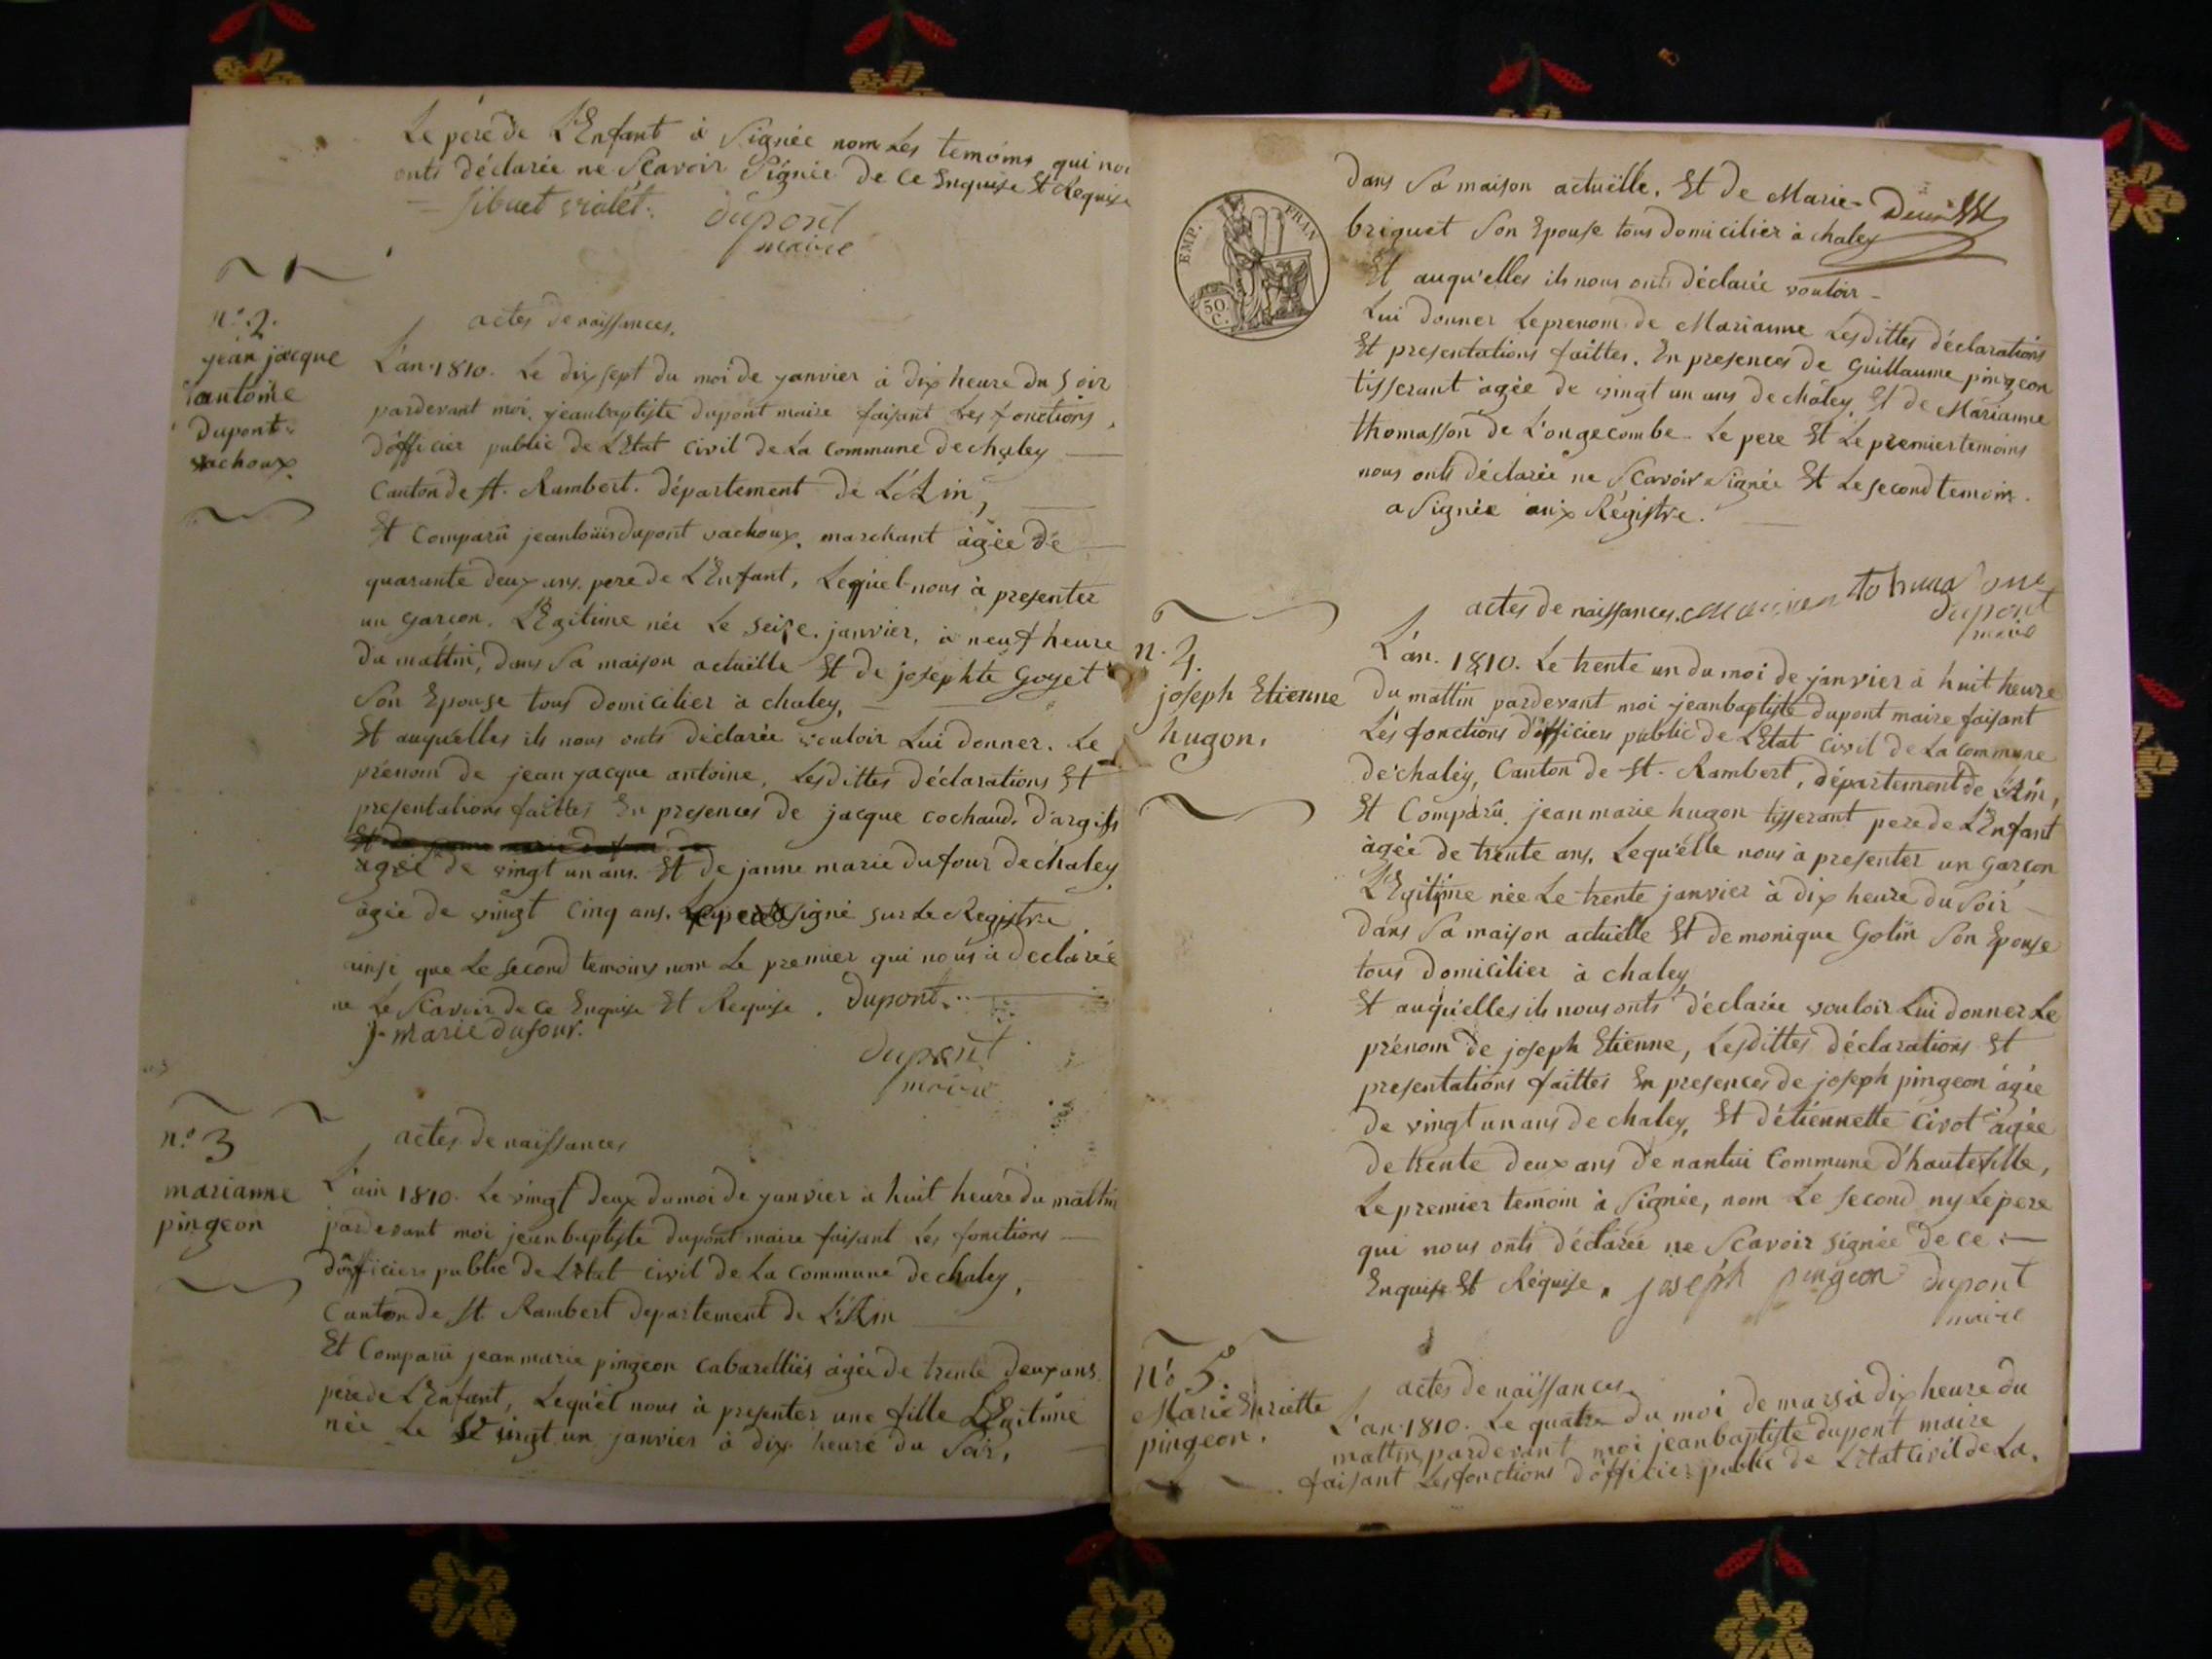 Le pere de L'Enfant à Signée nom Les temoins qui nou
onts déclarée ne Scavoir Signée de ce Enquise Et Requise
Sibuet violet. dupont
maire
n°. 2.
jean jacque
antoine
Dupont
vachoux
actes de naissances.
L'an 1810. Le dix sept du moi de janvier à dix heure du Soir
pardevant moi, jeanbaptiste dupont maire faisant Les fonctions,
d'officier public de L'Etat Civil de La Commune de chaley
Canton de St. Rambert. département de L'Ain,
Et Comparû jeanlouis dupont vachoux, marchant àgée de
quarante deux ans, pere de L'Enfant, Lequel nous à presenter
un Garcon, L'Egitime née Le Seize janvier, à neuf heure
du mattin, dans Sa maison actuëlle Et de josephte Goyet
Son Epouse tous domicilier à chaley,
Et auqu'elles ils nous onts déclarée vouloir Lui donner. Le
prénom de jean jacque antoine, Lesdittes déclarations Et
presentations faittes En presences de jacque cochaud, d'argis
àgée de vingt un ans. Et de janne marie dufour de chaley
àgée de vingt Cinq ans, Le pere a Signé sur Le Registre
ainsi que Le second temoins nom Le premier qui nous à declarée
ne Le Scavoir de ce Enquise Et Requise. dupont.
j. marie dufour.
dupont
maire
n° 3
marianne
pingeon
actes de naissances
L'ain 1810. Le vingt deux du moi de janvier à huit heure du mattin
pardevant moi jeanbaptiste dupont maire faisant Les fonctions
d'officiers public de L'etat Civil de La Commune de chaley,
Canton de St. Rambert departement de L'Ain
Et Comparû jean marie pingeon Cabarelliés àgée de trente deux ans
pere de L'Enfant, Lequ'el nous à presenter une fille L'Egitime
née Le vingt un janvier à dix heure du Soir,
EMP. FRAN
50
C.
dans Sa maison actuëlle. Et de Marie
briquet Son Epouse tous domicilier à chaley
Et auqu'elles ils nous onts déclarée vouloir
Lui donner Le prenom de Marianne Lesdittes déclarations
Et presentations faittes. En presences de Guillaume pingeon
tisserant àgée de vingt un ans de chaley, Et de Marianne
thomasson de L'ongecombe. Le pere Et Le premier temoins
nous onts déclarée ne Scavoir Signée Et Le second temoin
a Signée aux Régistre.
actes de naissances.
dupont
maire
n. 4.
joseph Etienne
hugon.
L'án. 1810. Le trente un du moi de janvier à huit heure
du mattin pardevant moi jeanbaptiste dupont maire faisant
Les fonctions d'officiers public de L'Etat Civil de La commune
de chaley, Canton de St. Rambert, département de L'Ain,
Et Comparû, jean marie hugon tisserant pere de L'Enfant
àgée de trente ans. Lequ'élle nous à presenter un Garcon
L'Egitime née Le trente janvier à dix heure du Soir
dans Sa maison actuëlle Et de monique Golin Son Epouse
tous domicilier à chaley
Et auqu'elles ils nous onts déclarée vouloir Lui donner Le
prénom de joseph Etienne, Lesdittes déclarations Et
presentations faittes En presences de joseph pingeon àgée
de vingt un ans de chaley, Et d'étiennette Civot àgée
de trente deux ans de nantui Commune d'hauteville,
Le premier temoin à Signée, nom Le second ny Le pere
qui nous onts déclarée ne Scavoir signée de ce
Enquise Et Réquise. joseph pingeon dupont
maire
N° 5.
Marie Enriette
pingeon.
actes de naïssances
L'an 1810. Le quatre du moi de mars à dix heure du
mattin, pardevant moi jeanbaptiste dupont maire
faisant Les fonctions d'officier public de L'etat Civil de La.